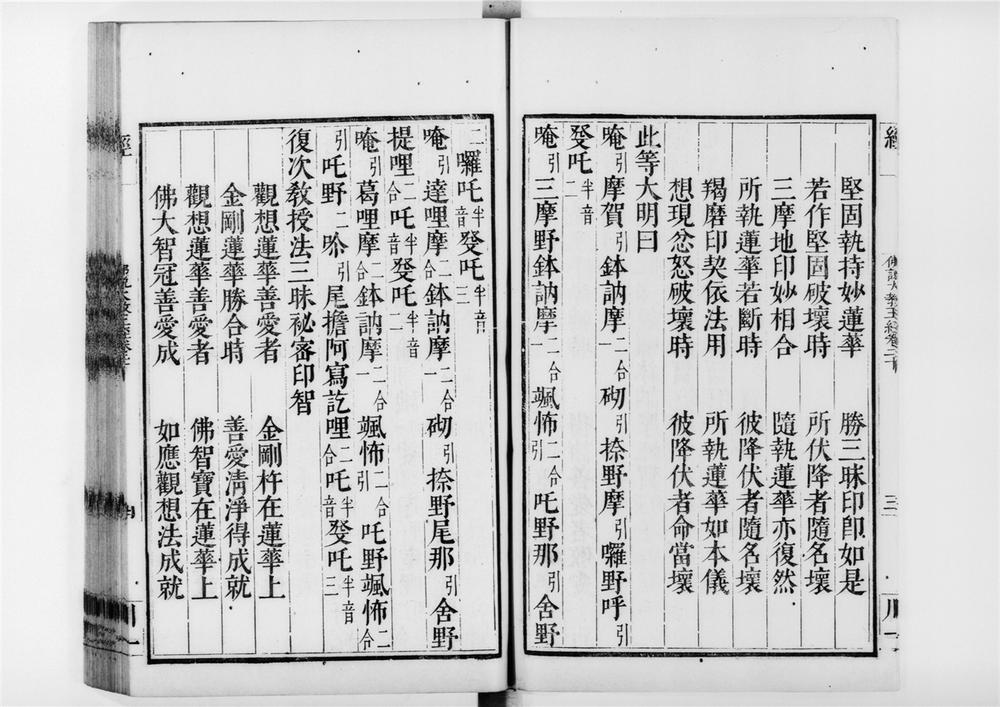 堅固執持妙蓮華 勝三昧印卽如是
若作堅固破壞時 所伏降者隨名壞
三摩地印妙相合 隨執蓮華亦復然
所執蓮華若斷時 彼降伏者隨名壞
羯磨印契依法用 所執蓮華如本儀
想現忿怒破壞時 彼降伏者命當壞
此等大明曰
唵引摩賀引鉢訥摩二合一砌引捺野摩引囉野呼引
發吒半音二
唵引三摩野鉢訥摩二合一颯怖二合引吒野那引舍野
二囉吒半音發吒半音三
唵引達哩摩二合鉢訥摩二合一砌引捺野尾那引舍野
提哩二合吒半音發吒半音二
唵引葛哩摩二合鉢訥摩二合一颯怖二合引吒野颯怖二合
引吒野二哛引尾擔阿寫訖哩二合吒半音發吒半音三
復次敎授法三昧祕密印智
觀想蓮華善愛者 金剛杵在蓮華上
金剛蓮華勝合時 善愛淸淨得成就
觀想蓮華善愛者 佛智寶在蓮華上
佛大智冠善愛成 如應觀想法成就
經
三